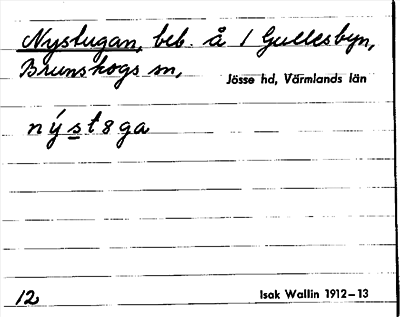 Nystugan, beb. å 1 Gullesbyn,
Brunskogs sn,
Jösse hd, Värmlands län
nýst8ga
12
Isak Wallin 1912–13